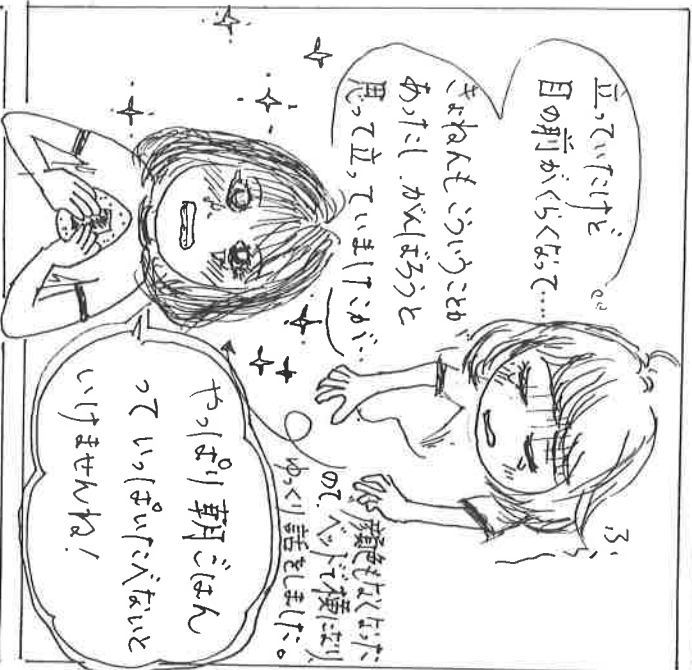 立っていたけど
目の前がくらくなって…
きょねんもこういうことが
あったし、がんばろうと
思って立っていましたが…
ふ
顔色もなくなった
ので、ベッドで横になり、
ゆっくり話をしました。
やっぱり朝ごはん
っていっぱいたべないと
いけませんね!